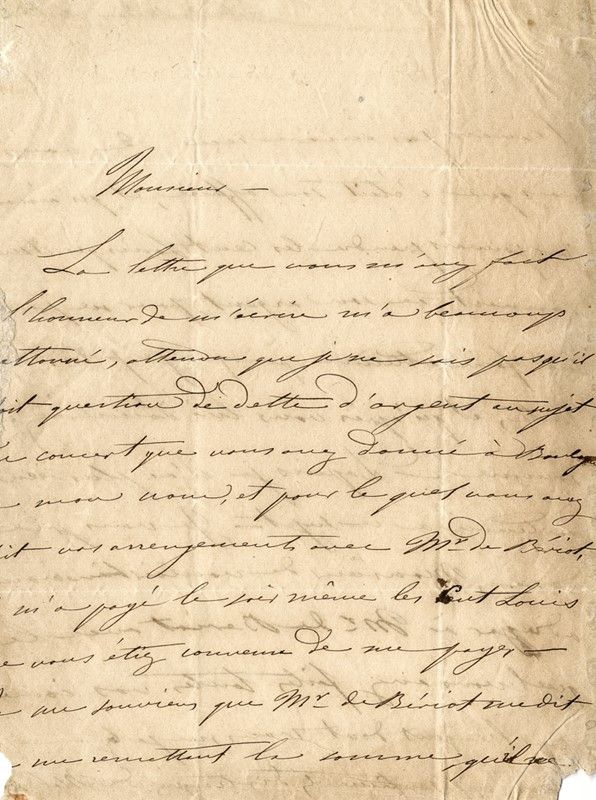 Monsieur —
La lettre que vous m'avez fait
l'honneur de m'écrire m'a beaucoup
ettonné, attendu que je ne sais pas qu'il
oit question de dette d'argent au sujet
concert que vous avez donné à Boulog
mon nom, et pour le quel vous avez
it vos arrangements avec Mr. de Bériot,
m'a payé le soir même les Cent Louis
e vous étiez convenu de me payer —
me souviens que Mr de Bériot me dit
me remettant la somme, qu'il ne